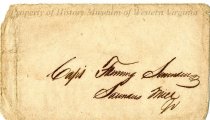 Property of History Museum of Western Virginia
Capt Fleming Saunders
Saunders
Va